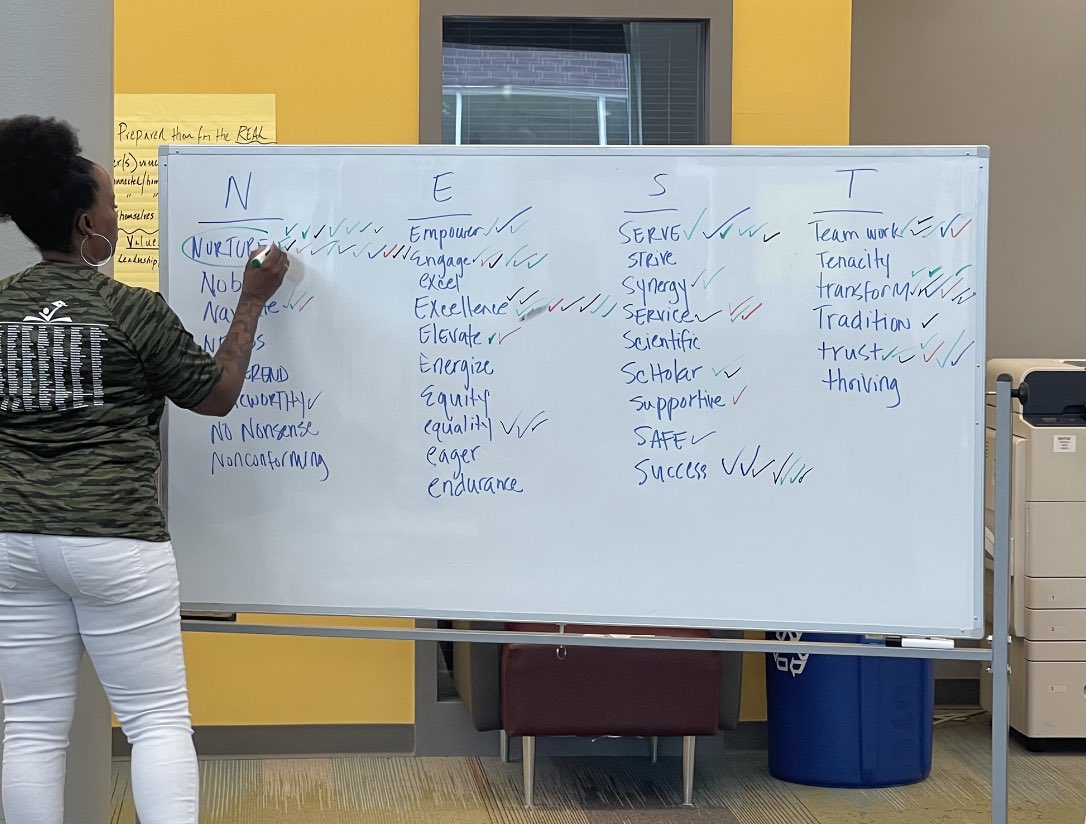 Prepared them for the REAL
themselves
Value
Leadership
N
NURTURE
No Nonsense
Nonconforming
E
Empower
Engage
excel
Excellence
Elevate
Energize
Equity
equality
eager
endurance
S
SERVE
STRIVE
Synergy
SERVICE
Scientific
Scholar
Supportive
SAFE
Success
T
Team work
Tenacity
transform
Tradition
trust
thriving